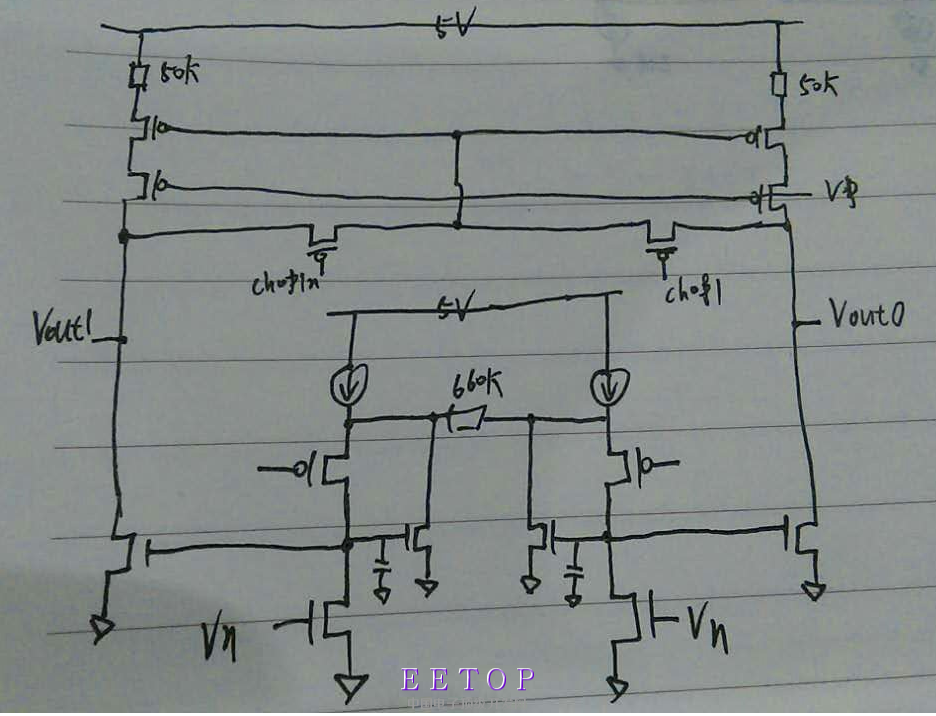 5V
50K
50K
VP
chop1n
chop1
5V
Vout1
Vout0
660K
Vn
Vn
EETOP